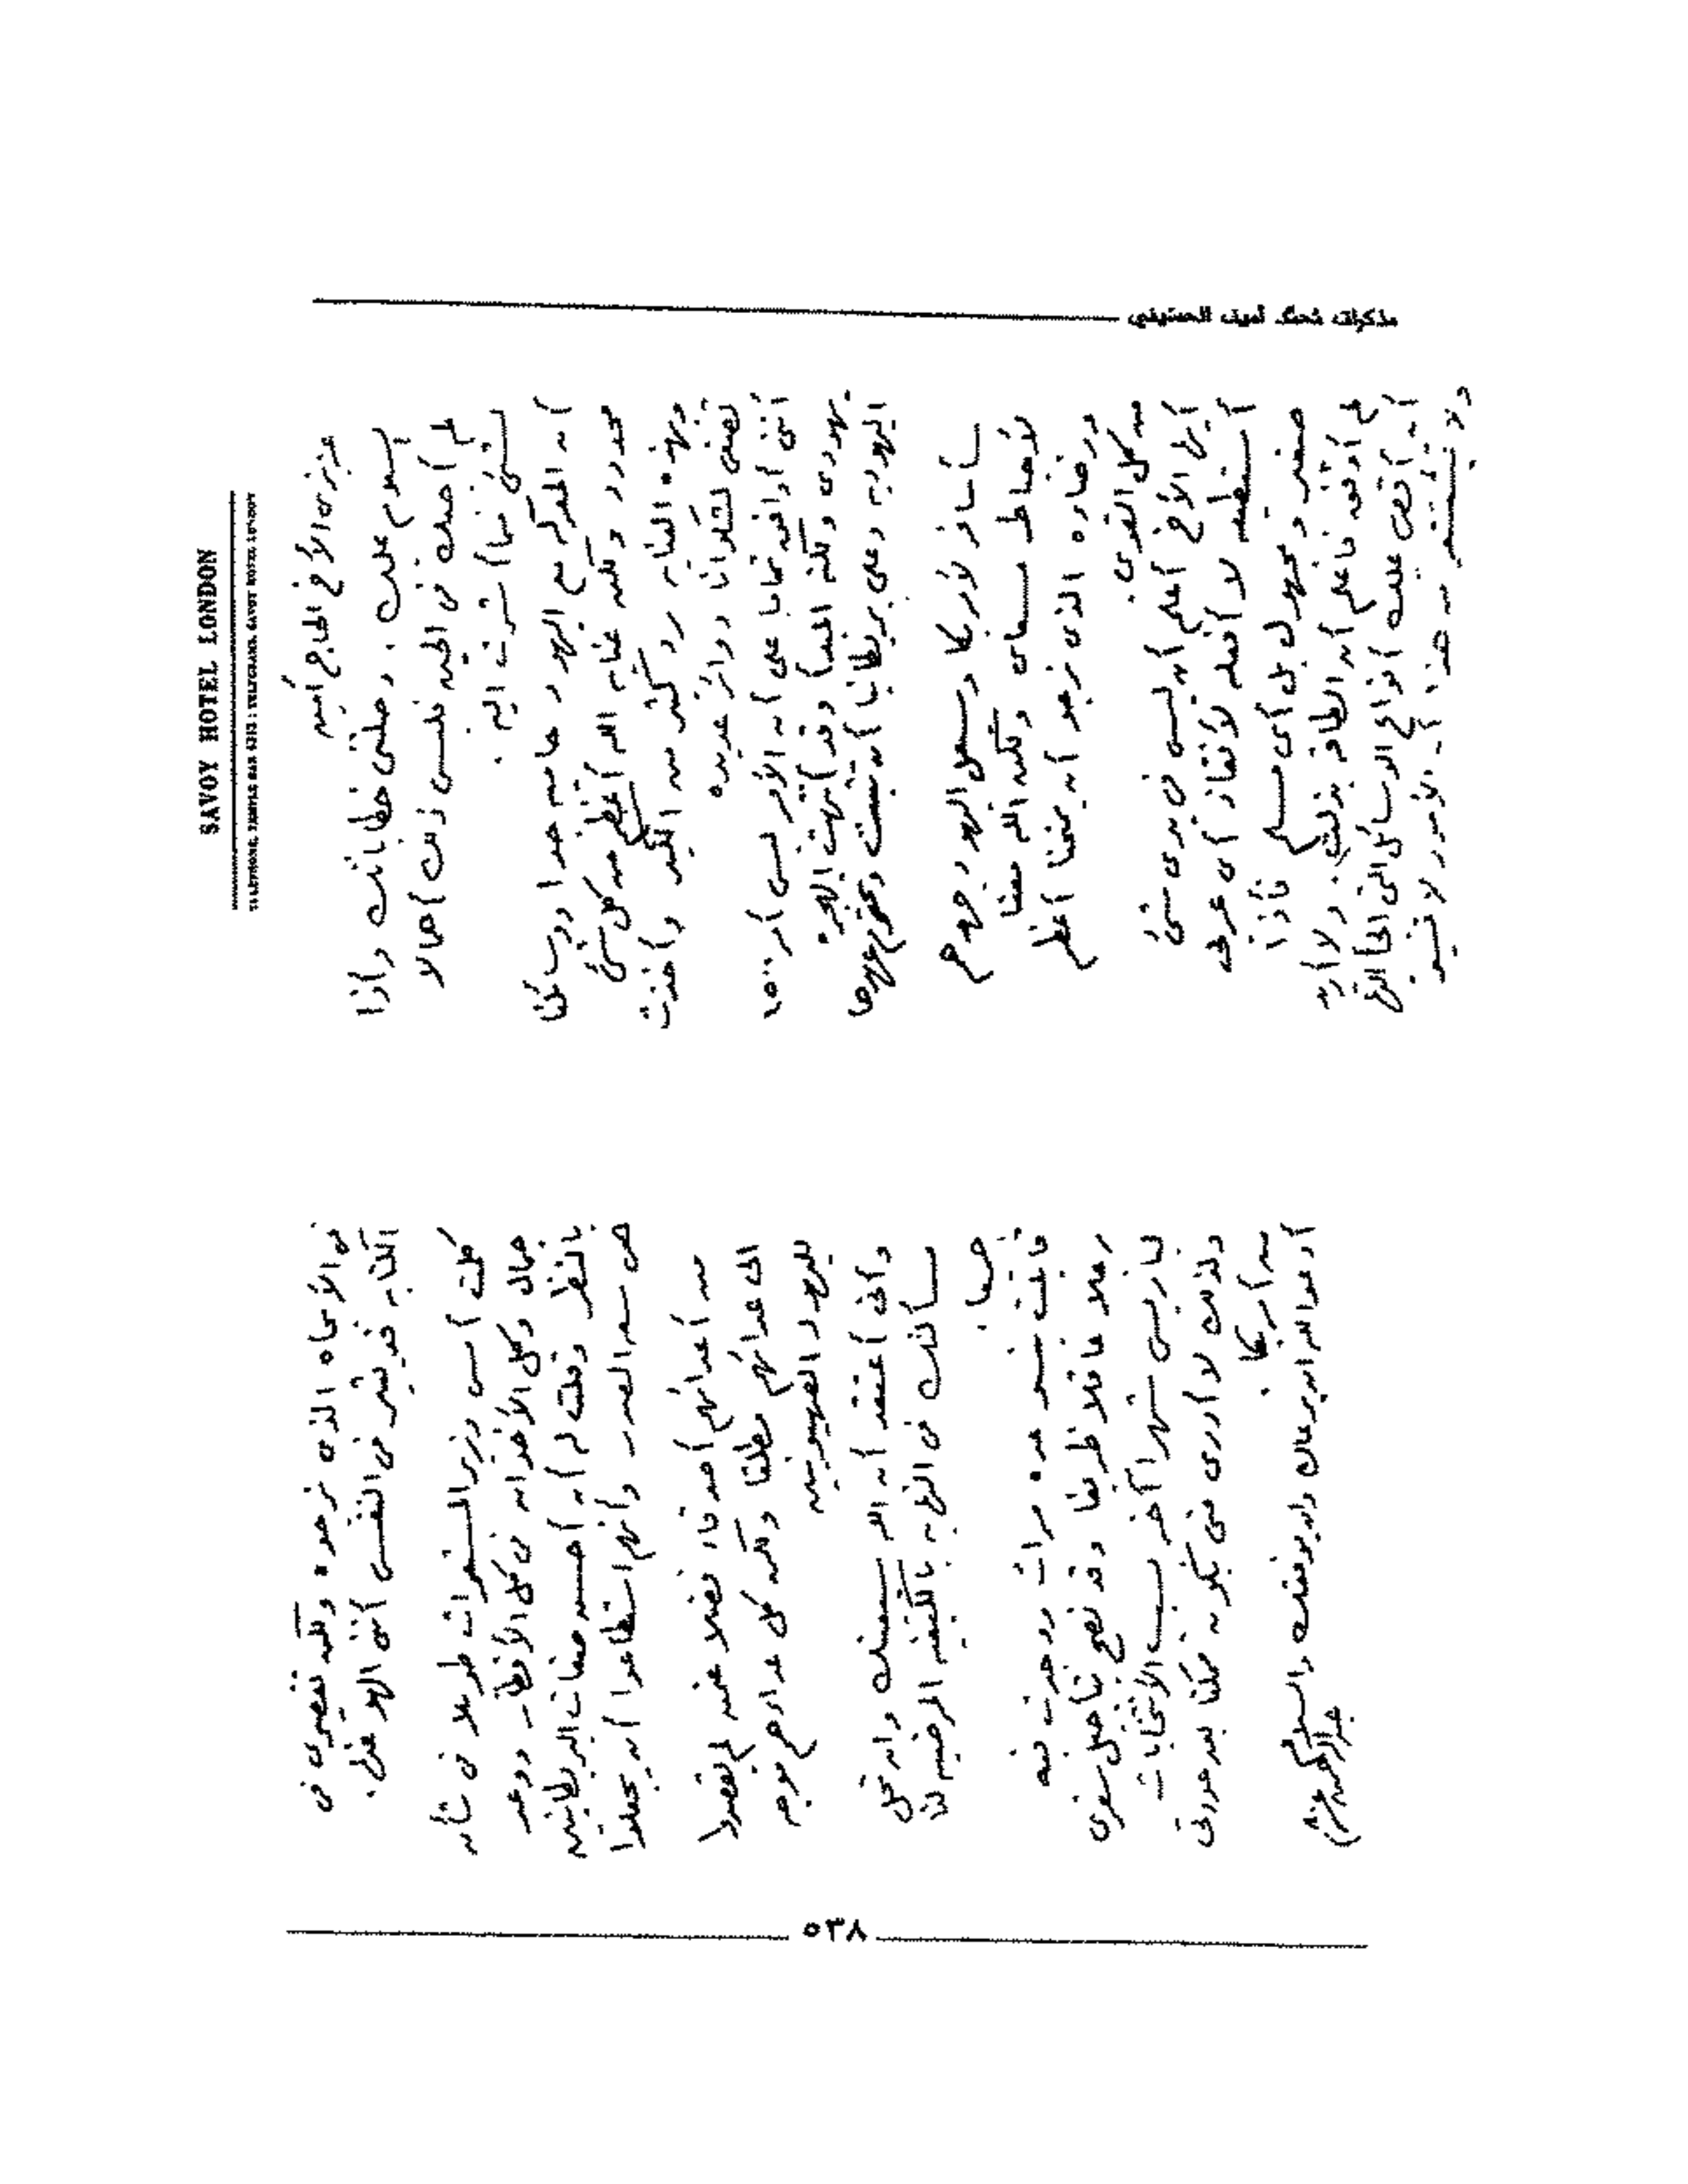 مذكرات محمد أمين الحسيني
SAVOY HOTEL LONDON
عزيزى الأخ الحاج أمين
سلام عليك، وصلتنى خطاباتك وأذا
لم أجبك فى الحين فليس ذلك أهمالا
لشئ مما أشرت اليه.
أن المعركة مع اليهود حاميه جدا ووسائلنا
محدوده ولكن عناية الله أعظم من كل شئ
وبهذه العناية رد كثير من الكيد وأخذت
تصغى لشكوانا دوائر عديده
أننى أوافقك تماما على أن الأمر ليس أمر ١٥٠٠
يهودى ولكنه المبدأ وقد أنتهت الهجره
اليهوديه وعلى بريطانيا أن تثبت وتحترم عهدها
سأسافر لأمريكا وسعى اليهود وجهدهم
لأحباط مساعى ولكن الله معنا
ورضاءه الذى نرجو أن يمنحنا أعظم
من كل القوى.
أيها الأخ أعلم أن ليس فى يدى شئ
أستطيعه لا أفعله لأنقاذ أى عربى
صغير ومجهول بل أى مسلم فأذا
لم أوفق فأعلم أن الطاقه بذلت، ولا أريد
أن أقص عليك أنواع الوسائل التى ألجأ اليها
ولا تستنتج من هذا أن الأمور لا تسير
فى الأتجاه الذى نرجوه ولكن تقصيرى فى
الكتابه قد يشعر فى النفس أننى الهو عنك.
كلمت أمس وزير المستعمرات طويلا فى شأن
جمال وكل الأخوان فى كل الأقطار ووعد
بالنظر وقلت له أن أحسن صفات البريطانيين
هى سعة الصدر وأنهم استطاعوا أن يجعلوا
من أعدائهم أصدقاء فضلا عمن لم يقصدوا
الى عدائهم مطلقا ولكن كل عداءهم موجه
لليهود والصهيونيين
وأنى أعتقد أن الله سيعينك وان تحل
مسألتك فى القريب بالكيفيه المرضيه لنا
جميعا.
قابلت مستر عده مرات ووجدت فيه
رجلا عاقلا ظريفا وقد نصح بتأجيل سفرى
لباريس شهرا آخر بسبب الأنتخابات
ولذلك لا أدرى متى يكون ممكنا بعد عودتى
من أمريكا.
أدعو الله ان يرعاك وان يوفقك والسلام
عبد الرحمن عزام
٥٣٨